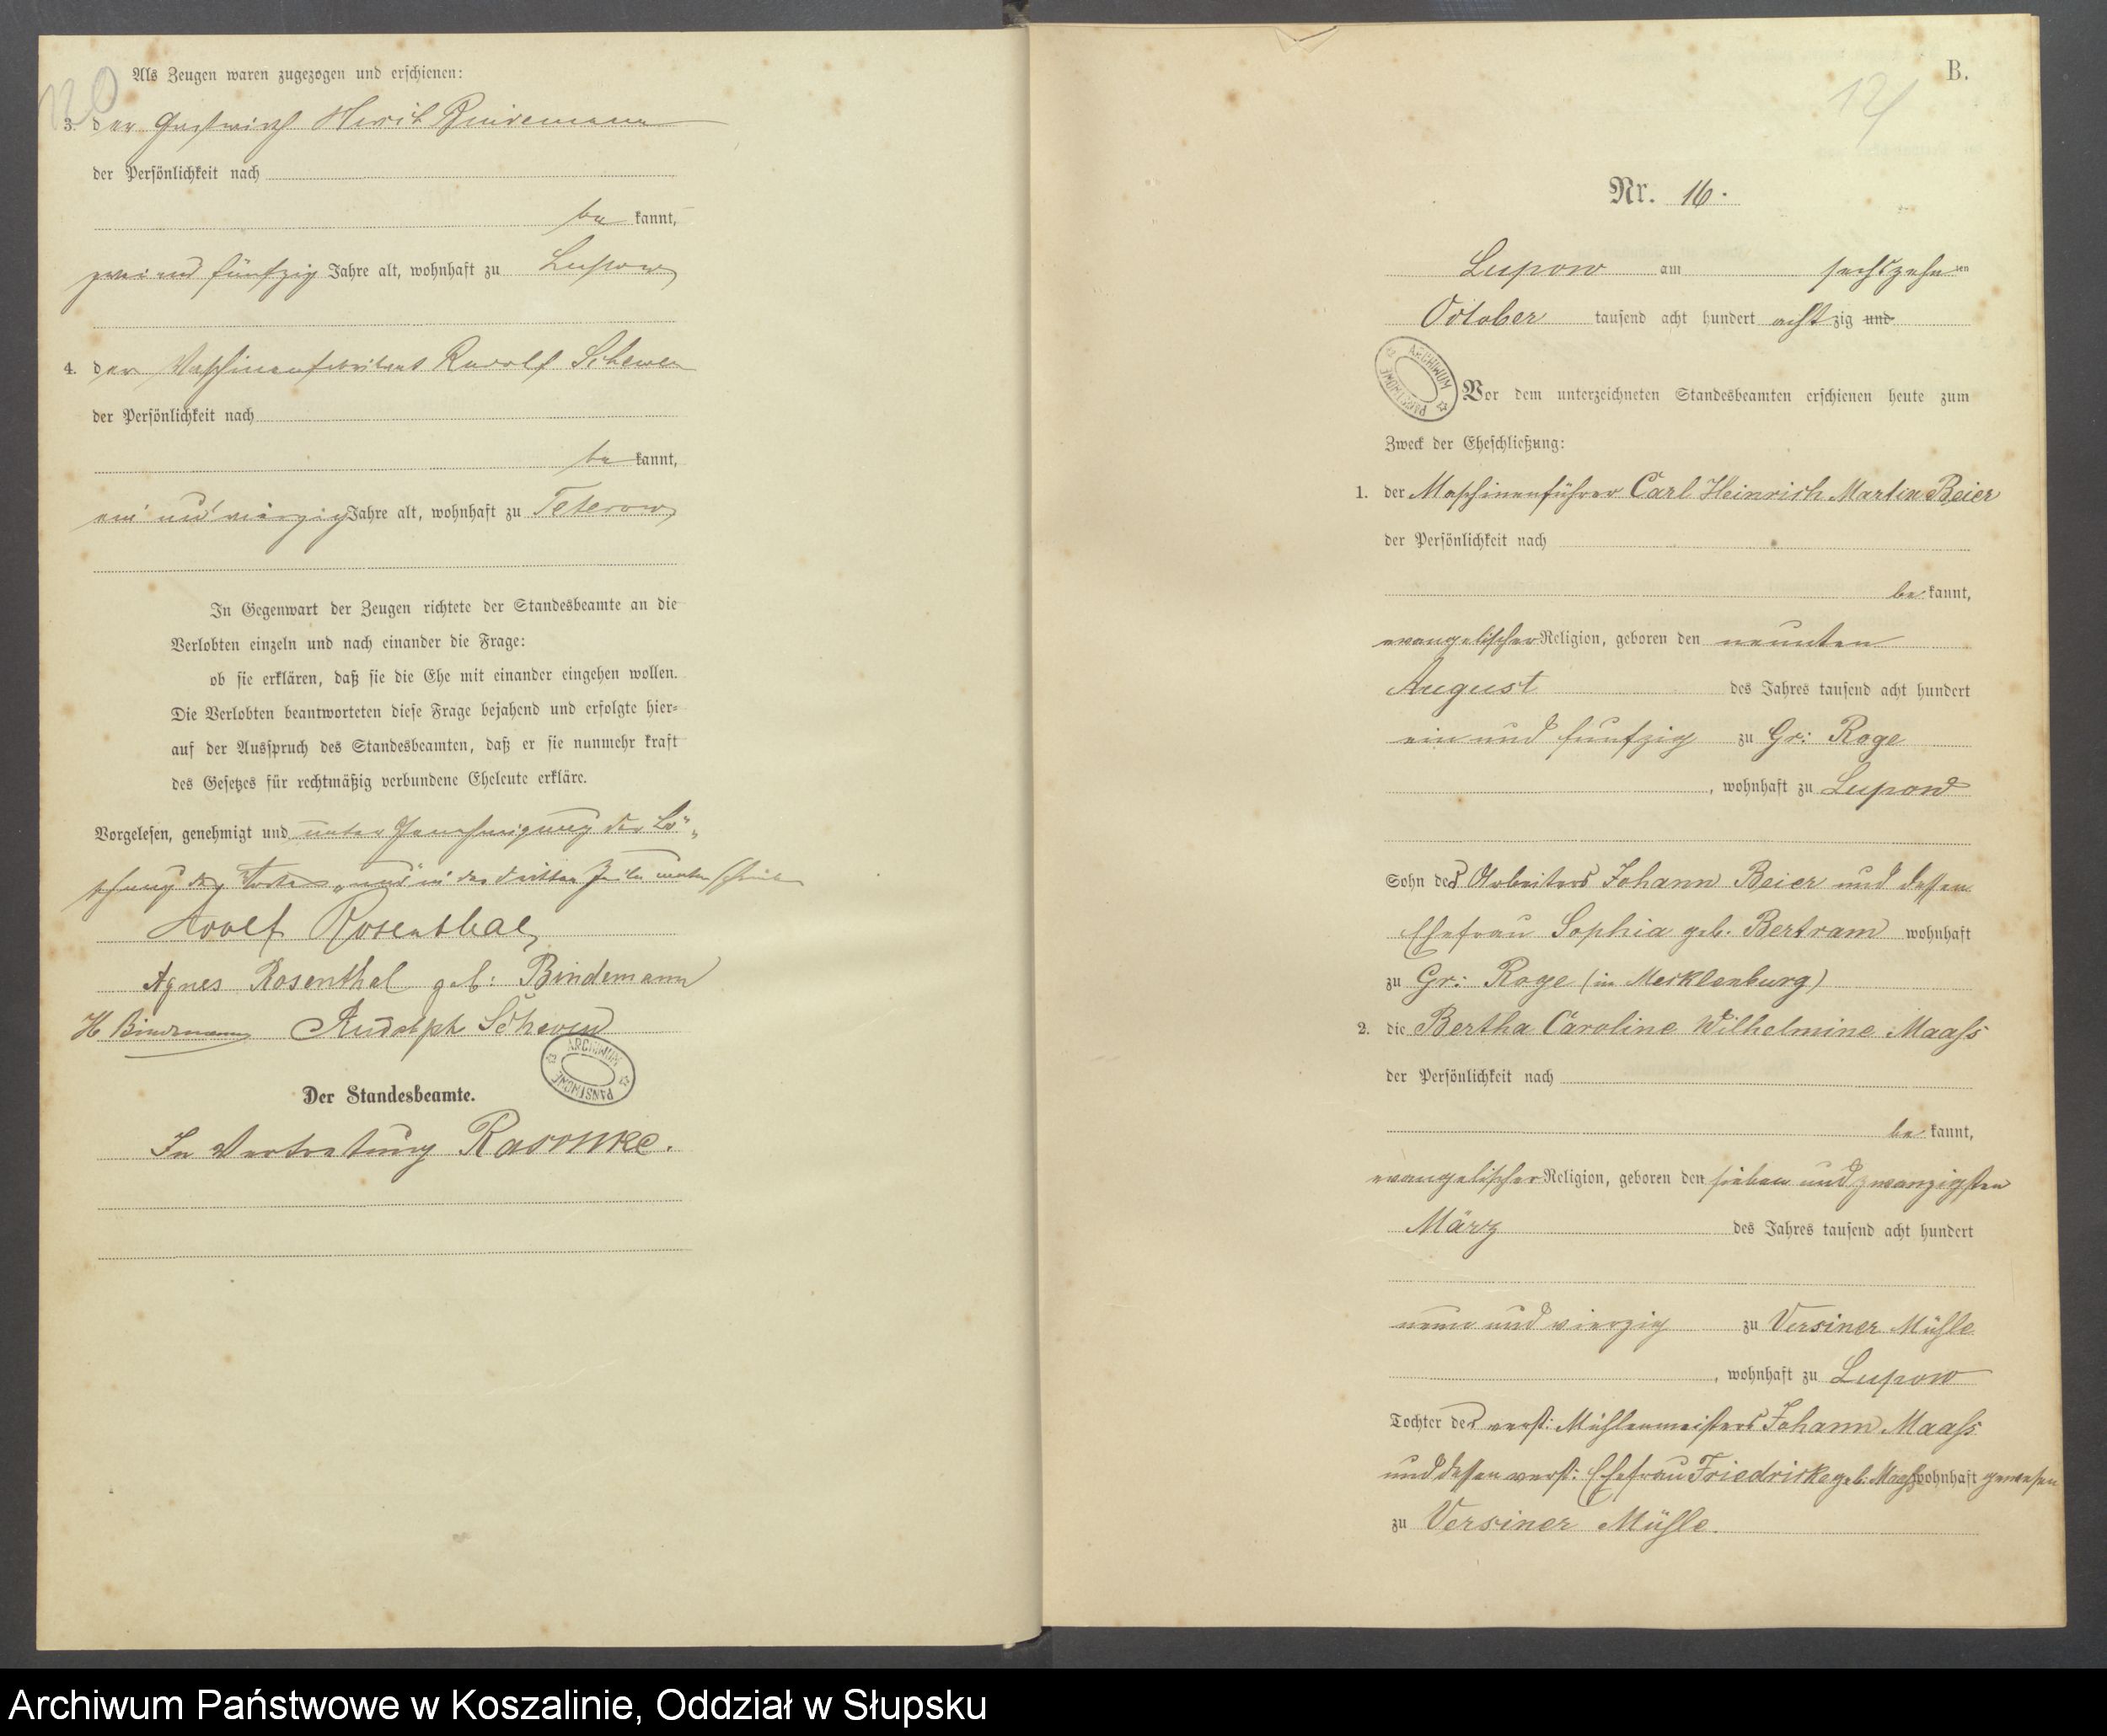 Als Zeugen waren zugezogen und erschienen:
3. der Gastwirth Bindemann
der Persönlichkeit nach
be kannt,
zwei und fünfzig Jahre alt, wohnhaft zu Lupow
4. der Maschinenfabrikant Rudolf Scheven
der Persönlichkeit nach
be kannt,
ein und vierzig Jahre alt, wohnhaft zu Teterow
In Gegenwart der Zeugen richtete der Standesbeamte an die
Verlobten einzeln und nach einander die Frage:
ob sie erklären, daß sie die Ehe mit einander eingehen wollen.
Die Verlobten beantworteten diese Frage bejahend und erfolgte hier-
auf der Ausspruch des Standesbeamten, daß er sie nunmehr kraft
des Gesetzes für rechtmäßig verbundene Eheleute erkläre.
Vorgelesen, genehmigt und unter Genehmigung der Lö-
schung des Wortes „und“ in der dritten Zeile unterschrieben
Adolf Rosenthal
Agnes Rosenthal geb: Bindemann
H Bindemann Rudolph Scheven
ARCHIWUM PAŃSTWOWE
Der Standesbeamte.
In Vertretung
B.
121
Nr. 16.
Lupow am sechszehn ten
October tausend acht hundert achtzig und
ARCHIWUM PAŃSTWOWE
Vor dem unterzeichneten Standesbeamten erschienen heute zum
Zweck der Eheschließung:
1. der Maschinenführer Carl Heinrich Martin Beier
der Persönlichkeit nach
be kannt,
evangelischer Religion, geboren den neunten
August des Jahres tausend acht hundert
ein und fünfzig zu Gr: Roge
, wohnhaft zu Lupow
Sohn des Arbeiters Johann Beier und dessen
Ehefrau Sophia geb. Bertram wohnhaft
zu Gr: Roge (in Mecklenburg)
2. die Bertha Caroline Wilhelmine Maaß
der Persönlichkeit nach
be kannt,
evangelischer Religion, geboren den sieben und zwanzigsten
März des Jahres tausend acht hundert
neun und vierzig zu Versiner Mühle
, wohnhaft zu Lupow
Tochter des verst: Mühlenmeisters Johann Maaß
und dessen verst: Ehefrau Friedricke geb. Maaß wohnhaft gewesen
zu Versiner Mühle.
Archiwum Państwowe w Koszalinie, Oddział w Słupsku